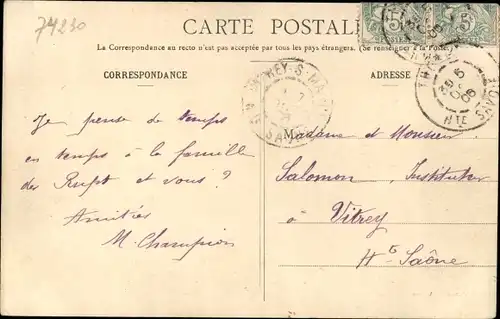 74230
CARTE POSTALE
La Correspondance au recto n'est pas acceptée par tous les pays étrangers. (Se renseigner à la Poste)
CORRESPONDANCE
ADRESSE
Je pense de temps
en temps à la famille
des Rufet et vous ?
Amitiés
M. Champion
Madame et Monsieur
Salomon, Instituteur
à Vitrey
Hte Saône
5
5
HTE SAVOIE